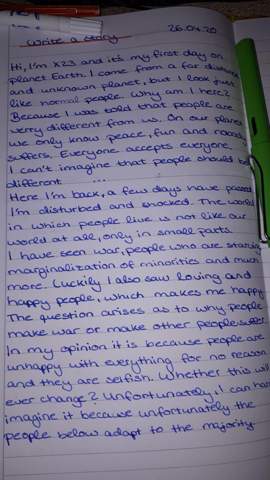 26.04.20
Write a story
Hi, I'm X23 and it's my first day on
planet Earth. I come from a far distance
and unknown planet, but I look just
like normal people. Why am I here?
Because I was told that people are
verry different from us. On our planet
we only know peace, fun and nobody
suffers. Everyone accepts everyone.
I can't imagine that people should be
different ....
Here I'm back, a few days have passed
I'm disturbed and shocked. The world
in which people live is not like our
world at all, only in small parts.
I have seen war, people who are starving
marginalization of minorities and much
more. Luckily I also saw loving and
happy people, which makes me happy
The question arises as to why people
make war or make other people suffer.
In my opinion it is because people are
unhappy with everything for no reason
and they are selfish. Whether this will
ever change? Unfortunately, I can hardly
imagine it because unfortunately the
people below adapt to the majority